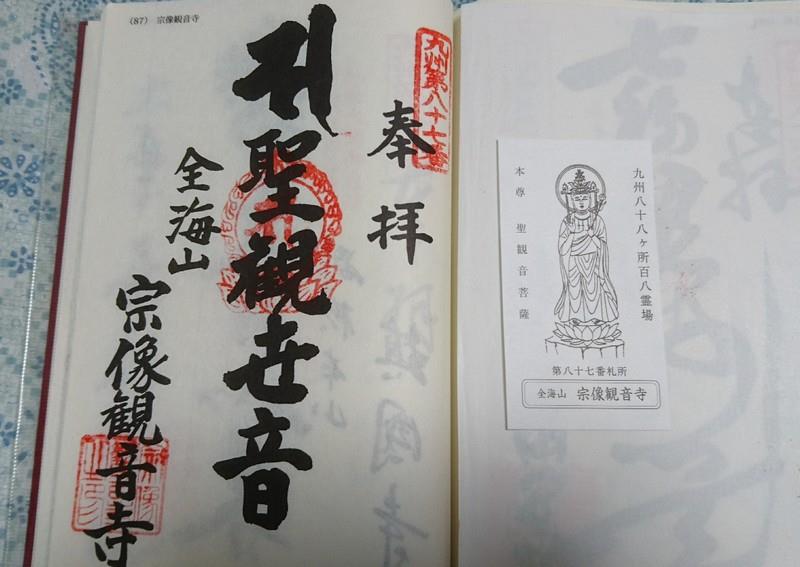 (87) 宗像観音寺
九州第八十七番
奉拝
聖観世音
全海山
宗像観音寺
九州八十八ヶ所百八霊場
本尊 聖観音菩薩
第八十七番札所
全海山 宗像観音寺